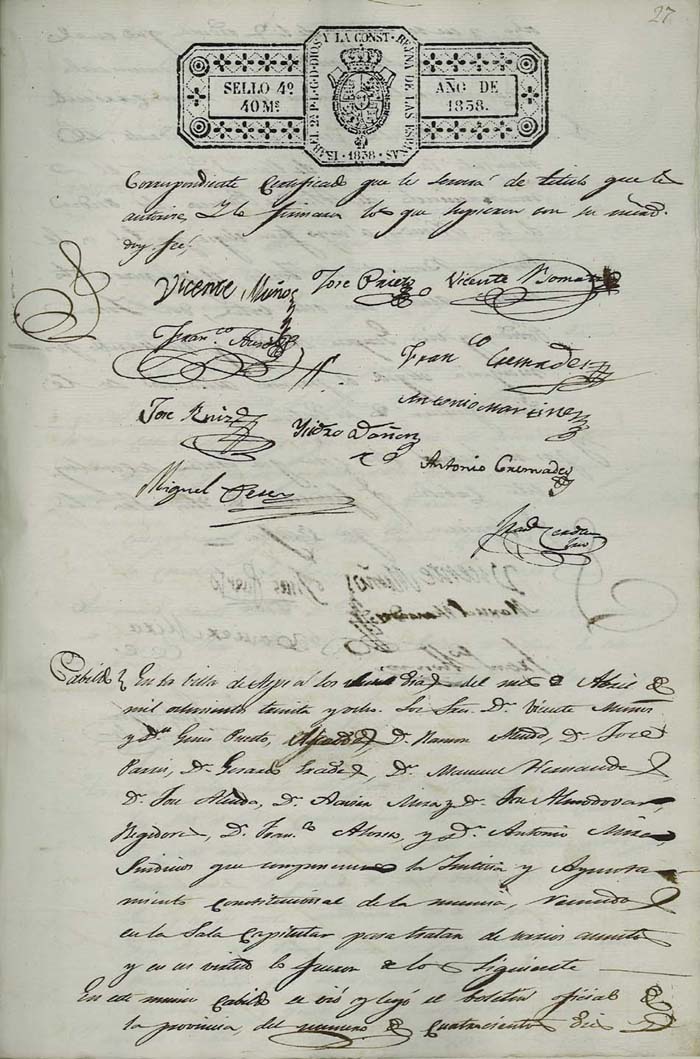 27
SELLO 4º
40 Ms
ISABEL 2ª P. L. G. D. DIOS Y LA CONST. REYNA DE LAS ESPAÑAS
1838
AÑO DE
1838.
Correspondiente Certificado que le servirá de titulo que le
autorize, Y lo firmaron los que supieron con su
doy fee,
Vicente Muñoz
Jose Prieto
Vicente
Fran.co
Fran.co Cremades
Antonio Martinez
Jose Ruiz
Ysidro
Antonio Cremades
Miguel Perez
Cabildo En la Villa de Aspe á los dias del mes de Abril de
mil ochocientos treinta y ocho. Los Sres. Dn. Vicente Muñoz
y Dn. Gines Prieto, Alcaldes, Dn. Ramon Dn. Jose
Dn. Gerardo Dn. Manuel Hernandez
Dn. Jose Dn. Mira y Dn. Jose Almodovar
Regidores, Dn. Fran.co Alonso, y Dn. Antonio Mira
Sindicos que componen la Justicia y Ayunta
miento constitucional de la misma, reunidos
en la Sala Capitular para tratar de varios asuntos
y en su virtud lo fueron de lo siguiente
En este mismo Cabildo se vió y leyó el boletin oficial de
la provincia, del numero de cuatrocientos